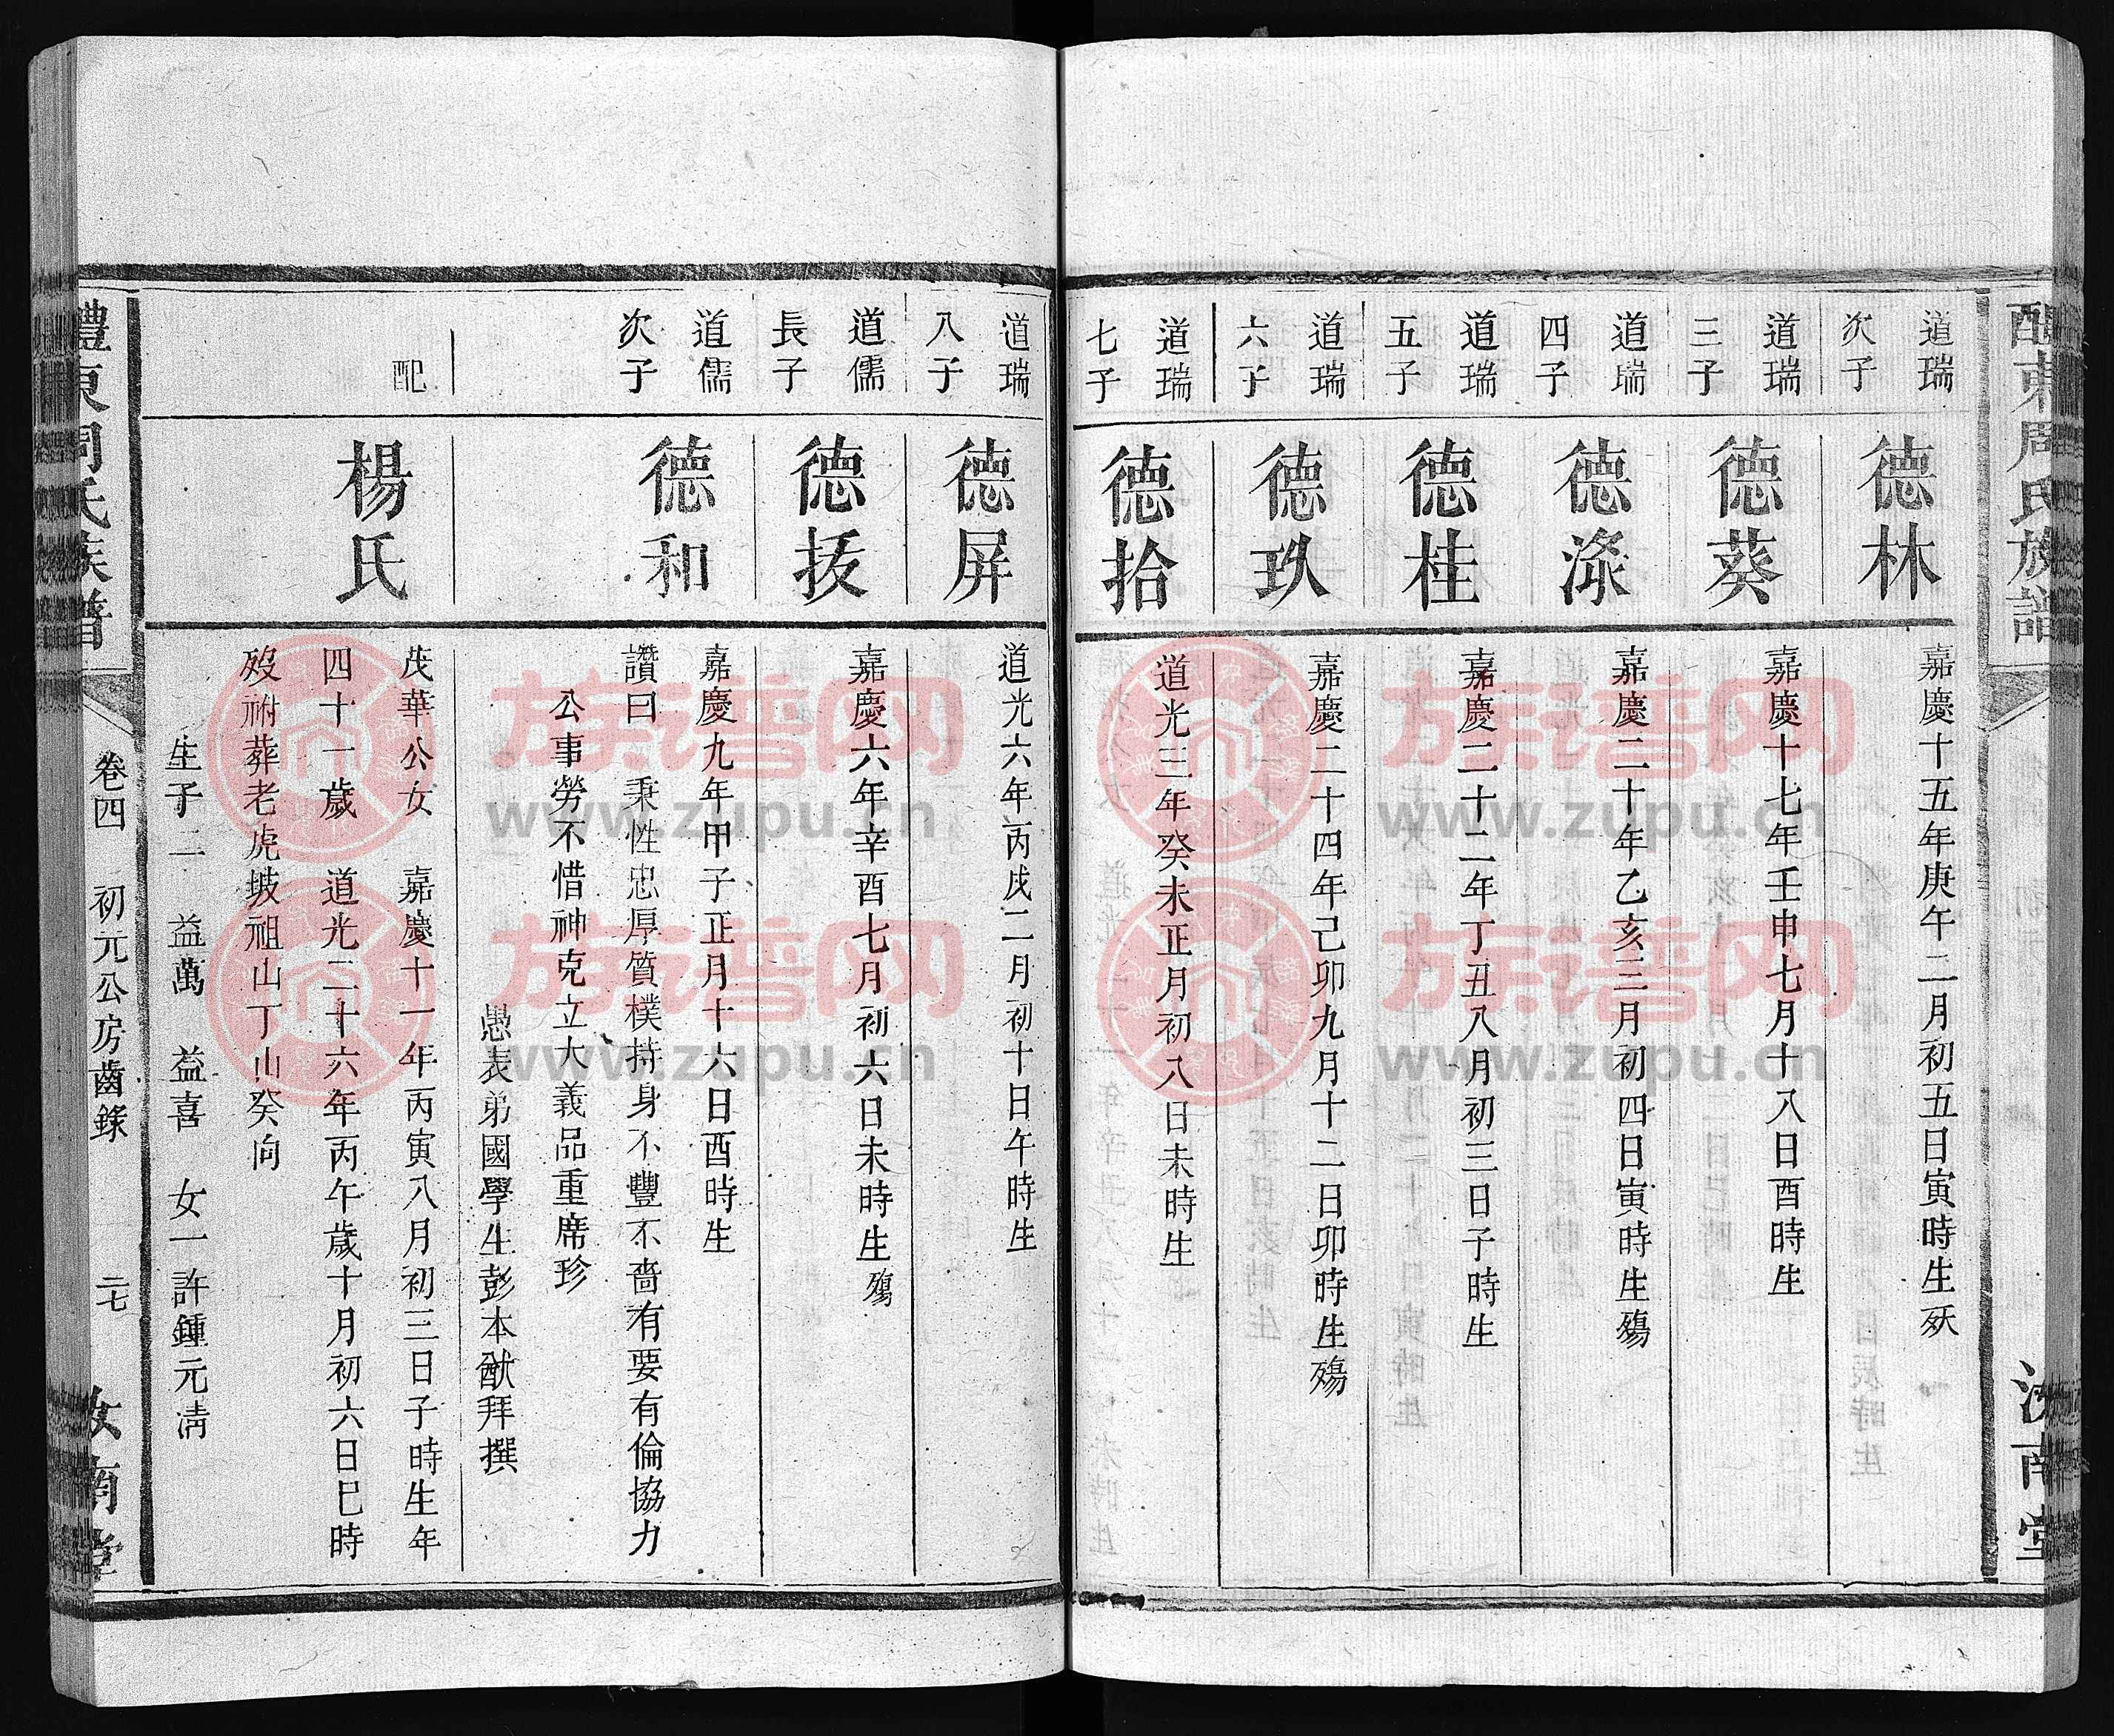 醴東周氏族譜
汝南堂
道瑞
次子
德林
嘉慶十五年庚午二月初五日寅時生殀
道瑞
三子
德葵
嘉慶十七年壬申七月十八日酉時生
道瑞
四子
德淥
嘉慶二十年乙亥三月初四日寅時生殤
道瑞
五子
德桂
嘉慶二十二年丁丑八月初三日子時生
道瑞
六子
德玖
嘉慶二十四年己卯九月十二日卯時生殤
道瑞
七子
德拾
道光三年癸未正月初八日未時生
道瑞
八子
德屏
道光六年丙戌二月初十日午時生
道儒
長子
德抜
嘉慶六年辛酉七月初六日未時生殤
道儒
次子
德和
嘉慶九年甲子正月十六日酉時生
讚曰 秉性忠厚質樸持身不豐不嗇有要有倫協力
公事勞不惜神克立大義品重席珍
愚表弟國學生彭本猷拜撰
配
楊氏
茂華公女 嘉慶十一年丙寅八月初三日子時生年
四十一歲 道光二十六年丙午歲十月初六日巳時
歿祔葬老虎坡祖山丁山癸向
生子二 益萬 益喜 女一許鍾元清
醴東周氏族譜
卷四 初元公房齒錄
二七
汝南堂
族谱网
www.zupu.cn
族谱网
www.zupu.cn
族谱网
www.zupu.cn
族谱网
www.zupu.cn